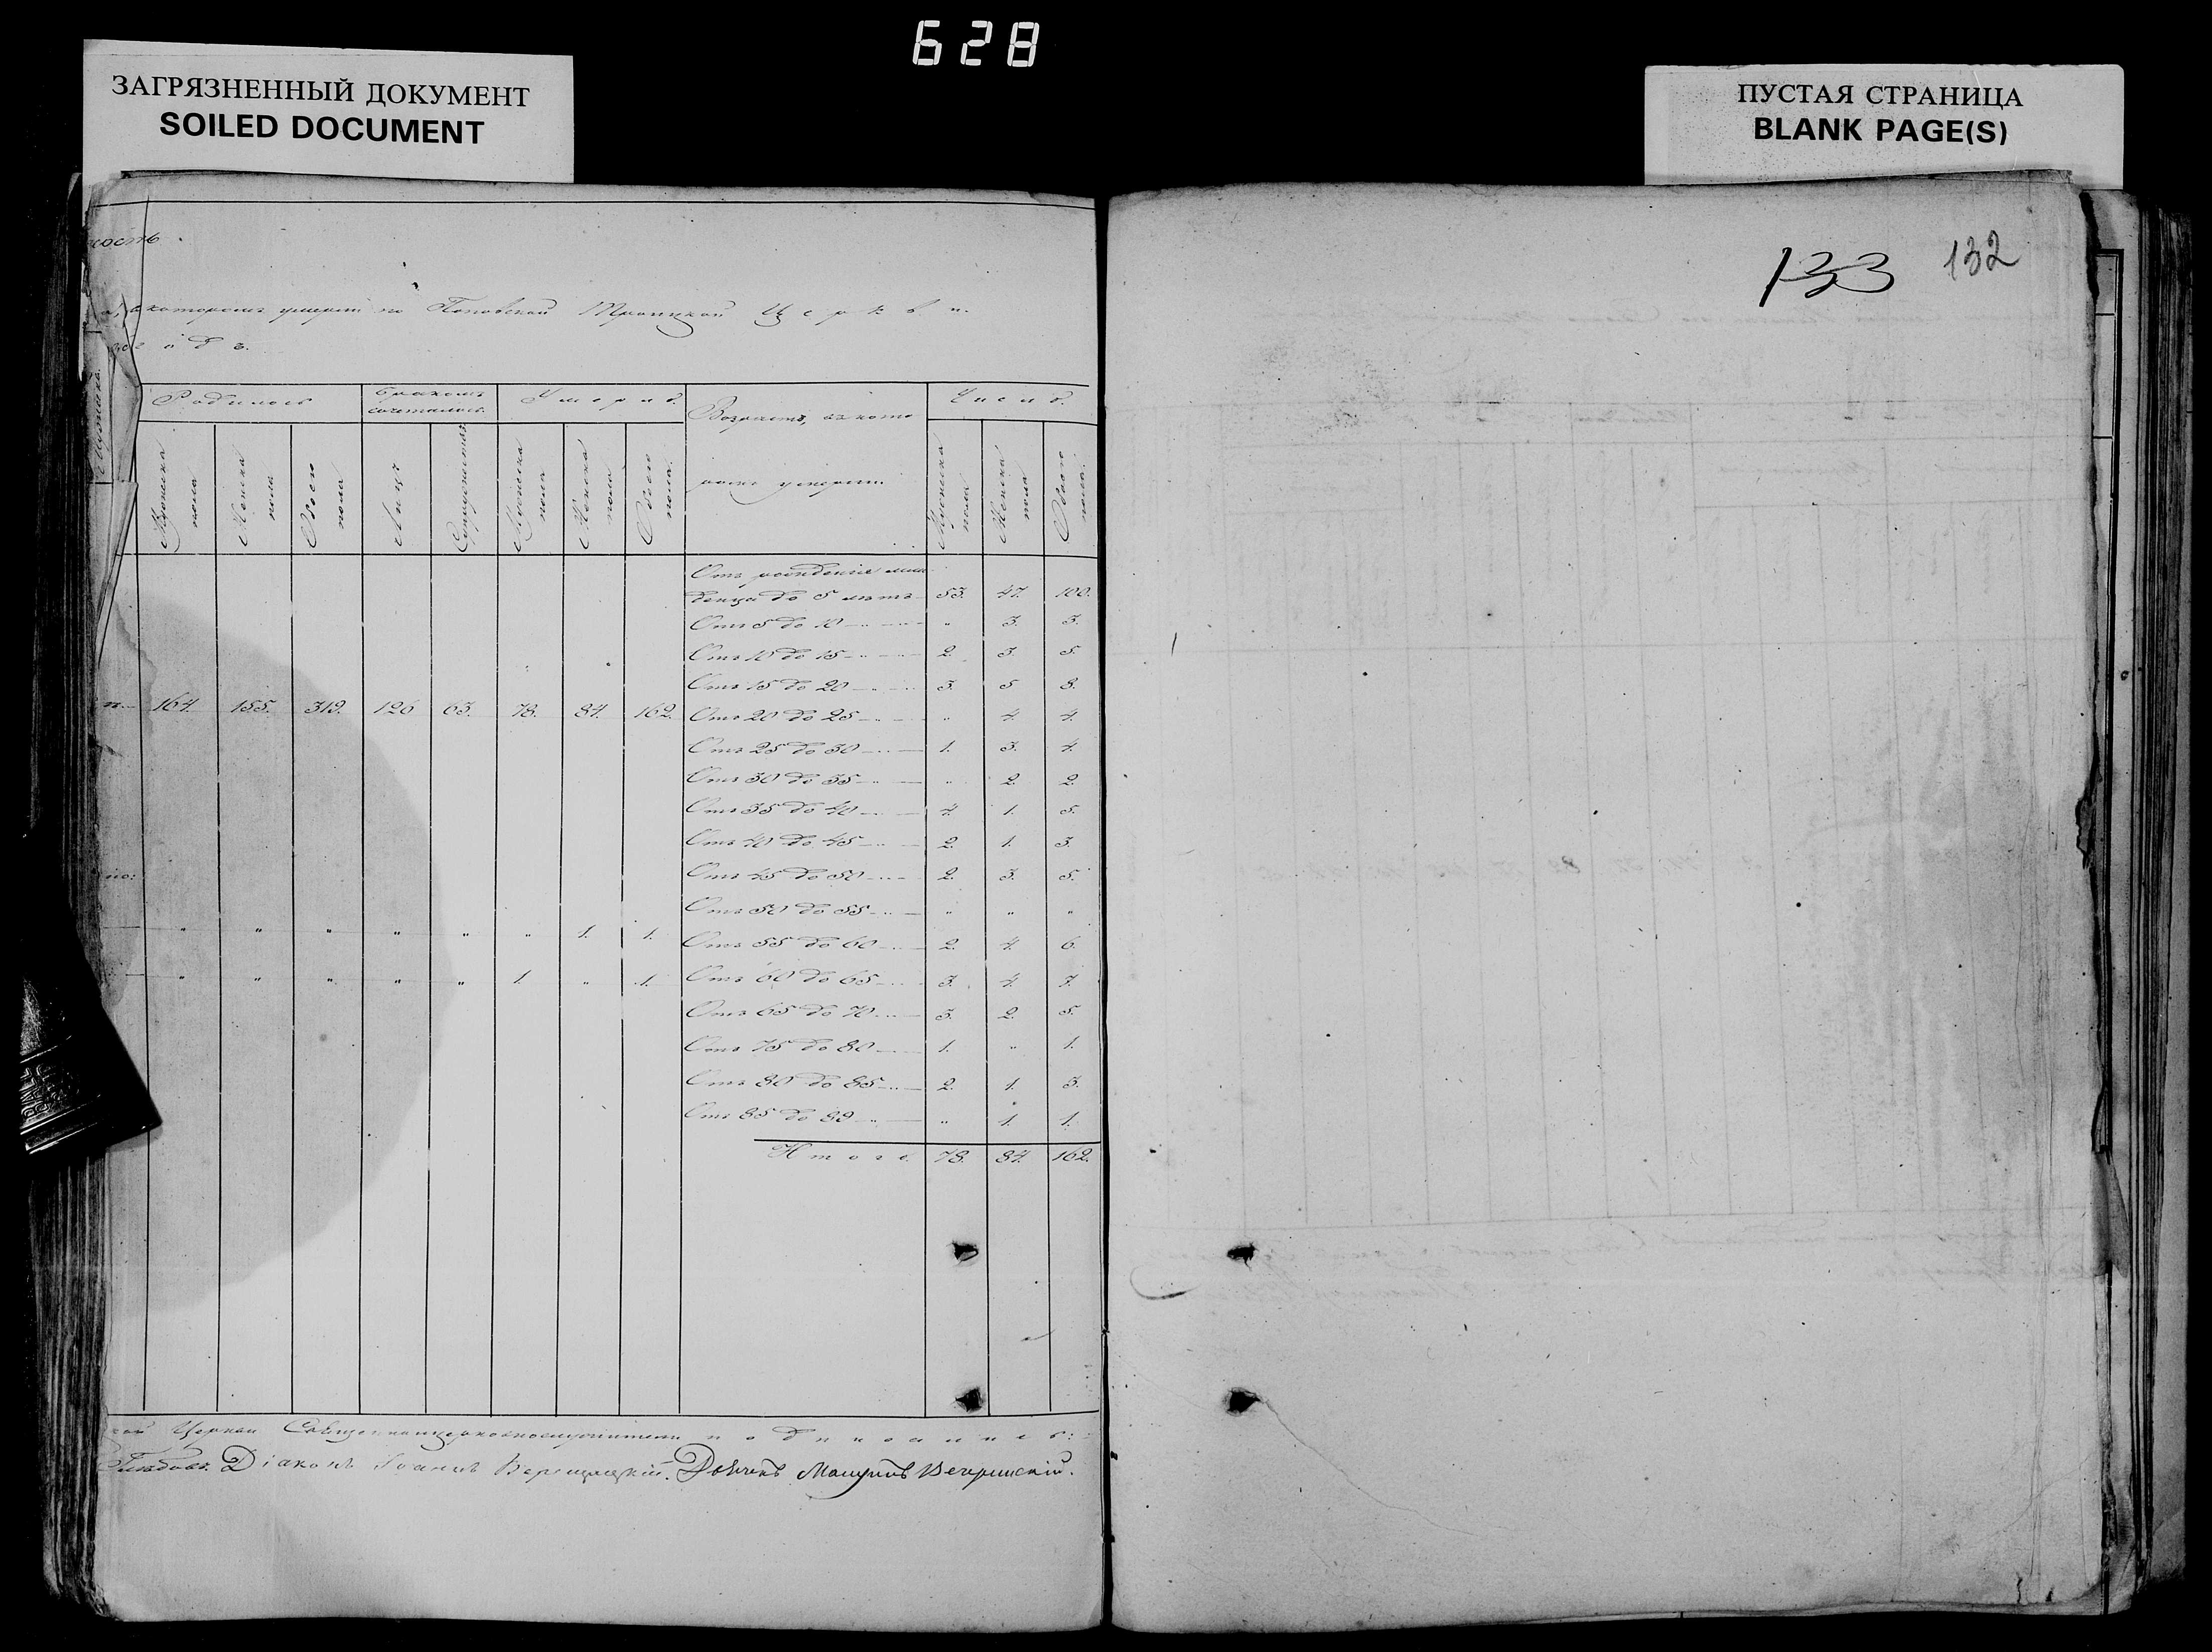 628
ЗАГРЯЗНЕННЫЙ ДОКУМЕНТ
SOILED DOCUMENT
ПУСТАЯ СТРАНИЦА
BLANK PAGE(S)
133 132
ность.
которомъ умерли по Поповской Троицкой Церкви.
Родилось
Бракомъ сочеталось
Умерло.
Возрастъ, въ кото
ромъ умерли.
Число.
Мужеска пола
Женска пола
Обоего пола
Лицъ
Супружествъ
Мужеска пола
Женска пола
Обоего пола.
Мужеска пола
Женска пола
Обоего пола.
Отъ рожденія мла
денца до 5 летъ 53. 47. 100.
Отъ 5 до 10 — „ — „ 3. 3.
Отъ 10 до 15 — „ — 2. 3. 5.
Отъ 15 до 20 — „ — 3. 5 8.
164. 155. 319. 126 63. 78. 84. 162.
Отъ 20 до 25 — „ — „ 4. 4.
Отъ 25 до 30 — „ — 1. 3. 4.
Отъ 30 до 35 — „ — „ 2. 2.
Отъ 35 до 40 — „ — 4. 1. 5.
Отъ 40 до 45 — „ — 2. 1. 3.
Отъ 45 до 50 — „ — 2. 3. 5.
Отъ 50 до 55 — „ — „ „ „
„ „ „ „ „ „ 1. 1.
Отъ 55 до 60 — „ — 2. 4. 6.
„ „ „ „ „ 1. „ 1.
Отъ 60 до 65 — „ — 3. 4. 7.
Отъ 65 до 70 — „ — 3. 2. 5.
Отъ 75 до 80 — „ — 1. „ 1.
Отъ 80 до 85 — „ — 2. 1. 3.
Отъ 85 до 89 — „ — „ 1. 1.
Итого. 78. 84. 162.
Церкви Священноцерковнослужители подписались:
Діаконъ Іоаннъ Верещацкій. Дьячекъ